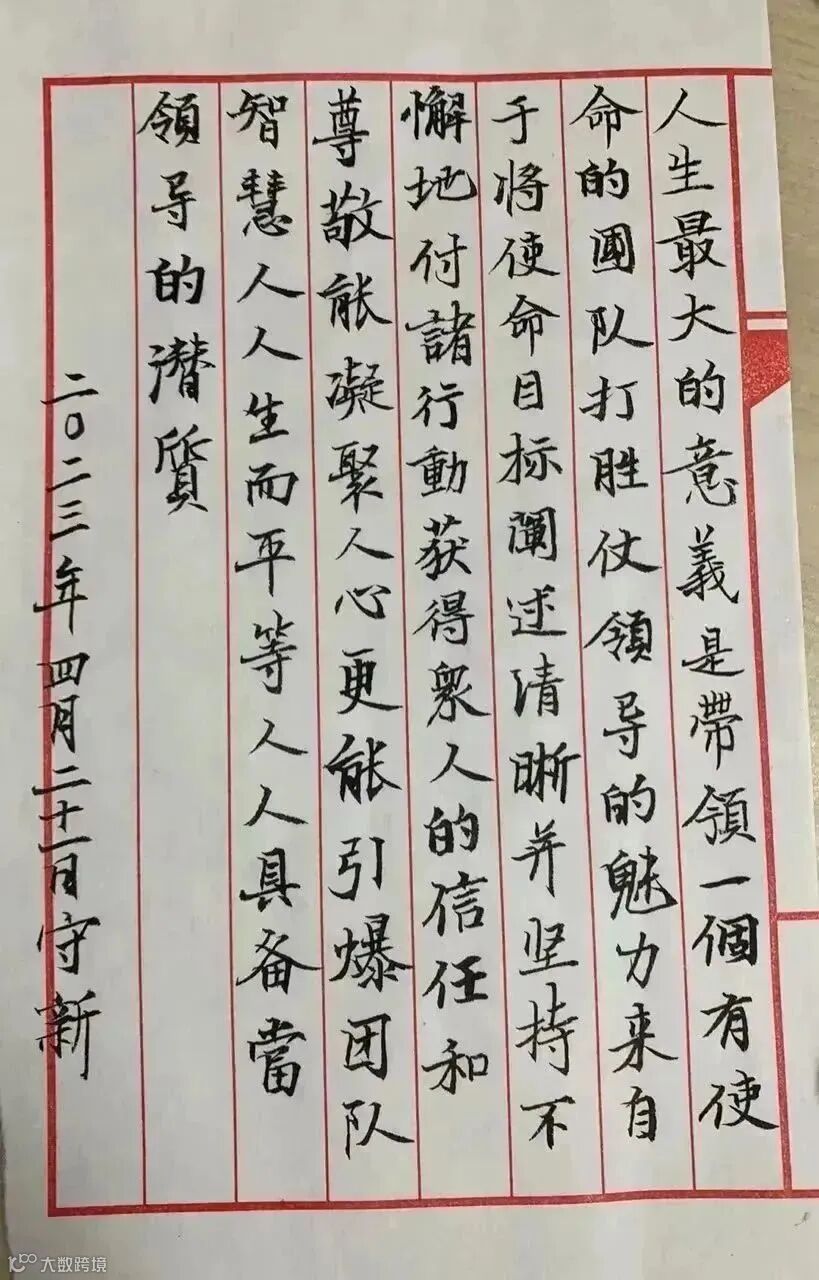 人生最大的意義是帶領一個有使
命的圑队打胜仗領导的魅力来自
于将使命目标闡述清晰并坚持不
懈地付諸行動获得衆人的信任和
尊敬能凝聚人心更能引爆团队
智慧人人生而平等人人具备當
領导的潜質
二〇二三年四月二十一日守新
大数跨境